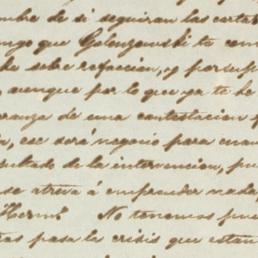 mbre de si seguiran las cartas
ngo que Golenzowski te com
he sobre refaccion, y por su p
, aunque por lo que ya te he
eranza de una contestacion f
in, ese será negocio para cuan
sultado de la intervencion, pu
se atreva á emprender nada,
Herm.º No tenemos pue
tras pasa la crisis que estan